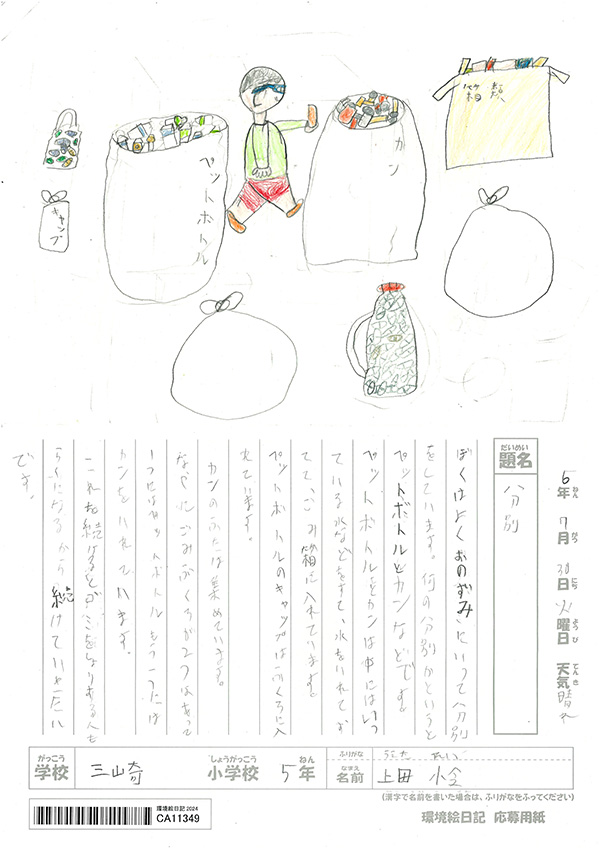 ペットボトル
カン
キャップ
6年 7月 30日 火曜日 天気 晴れ
ねん がつ にち ようび てんき
だいめい
題名
分別
ぼくはよくおのずみにいって分別
をしています。何の分別かというと
ペットボトルとカンなどです。
ペットボトルをカンは中にはいっ
ている水などをすて、水をいれてお
てて、ごみ箱に入れています。
ペットボトルのキャップはふくろに入
れています。
カンのふたは集めています。
カンをいれています。
これを続けるとゴミをしょりする人も
らくになるから続けていきたい
です。
がっこう
学校
三山奇
しょうがっこう
小学校
5年
ねん
ふりがな
なまえ
名前
上田
(漢字で名前を書いた場合は、ふりがなをふってください)
環境絵日記 2024
CA11349
環境絵日記 応募用紙